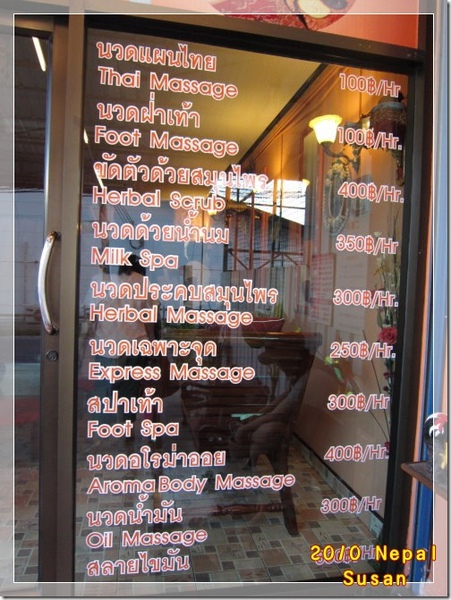 นวดแผนไทย
Thai Massage 100฿/Hr
นวดฝ่าเท้า
Foot Massage 100฿/Hr.
ขัดตัวด้วยสมุนไพร
Herbal Scrub 400฿/Hr.
นวดด้วยน้ำนม
Milk Spa 350฿/Hr
นวดประคบสมุนไพร
Herbal Massage 300฿/Hr.
นวดเฉพาะจุด
Express Massage 250฿/Hr.
สปาเท้า
Foot Spa 300฿/Hr
นวดอโรม่าออย
Aroma Body Massage 400฿/Hr.
นวดน้ำมัน
Oil Massage 300฿/Hr
สลายไขมัน
20/0 Nepal
Susan